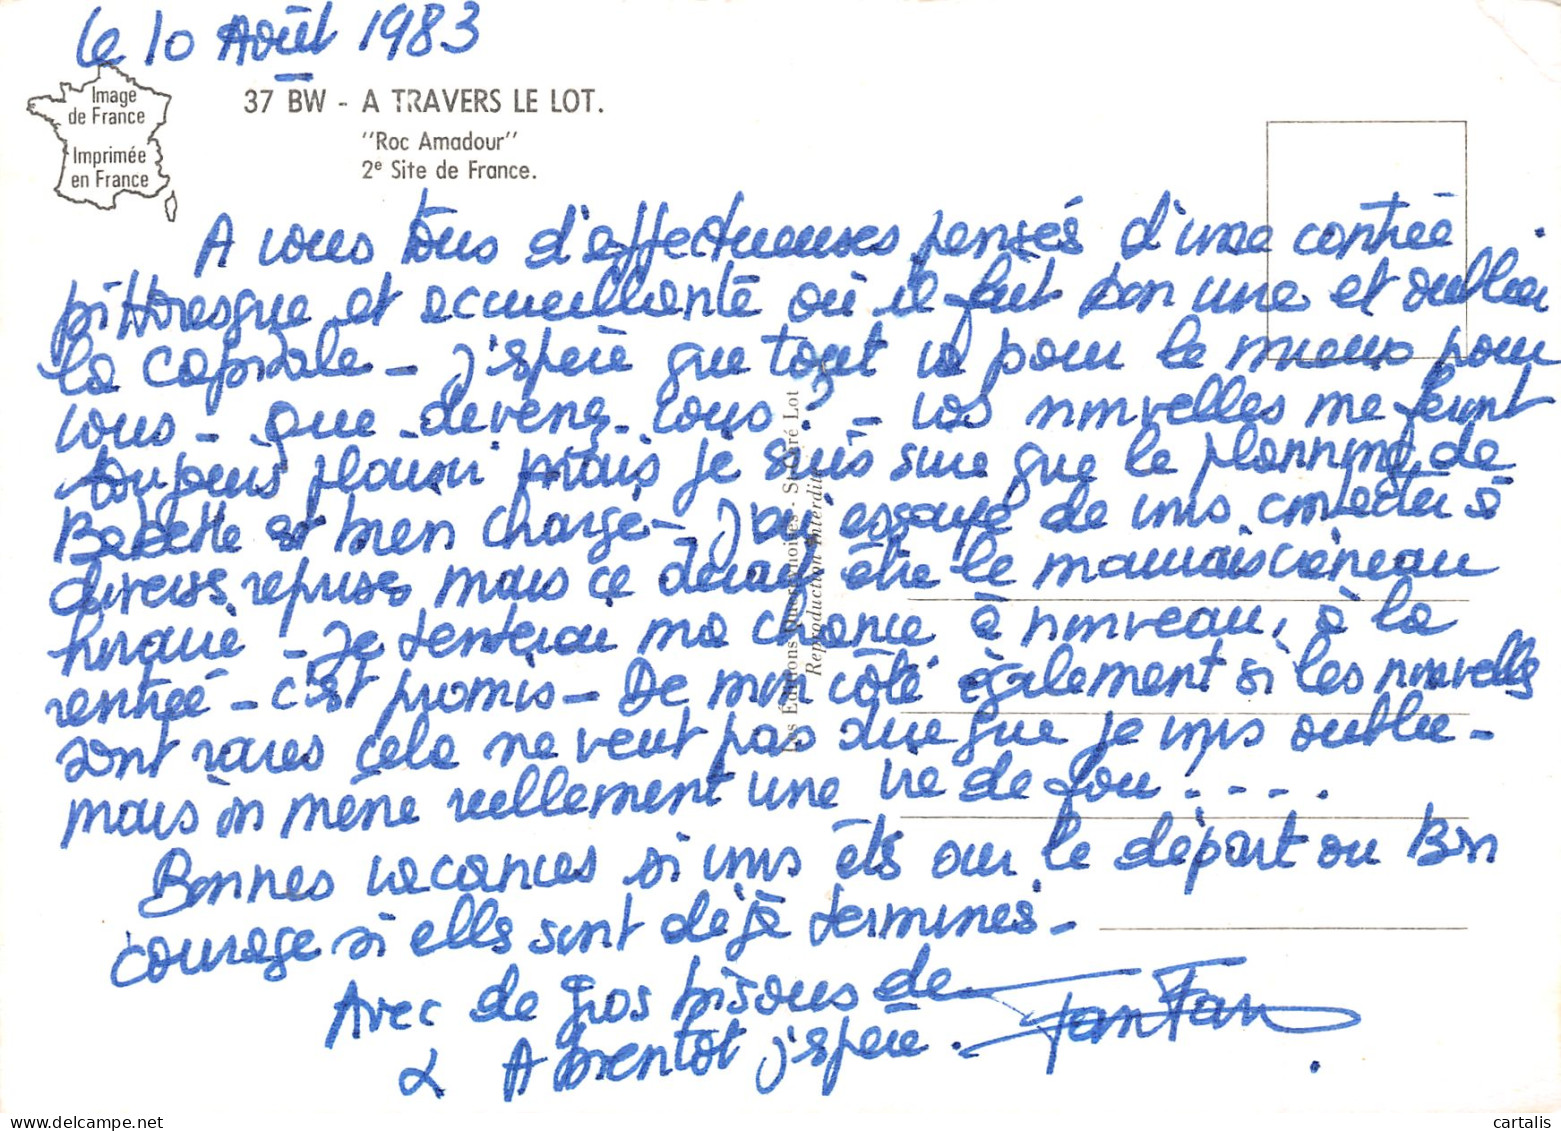 le 10 Août 1983
Image
de France
Imprimée
en France
37 BW - A TRAVERS LE LOT.
"Roc Amadour"
2e Site de France.
A vous tous d'affectueuses pensés d'une contrée
pittoresque et accueillante où il fait bon vivre et oublier
la capitale - j'espère que tout va pour le mieux pour
vous - que devenez-vous ? - vos nouvelles me feront
toujours plaisir mais je suis sure que le planning de
Babette est bien chargé - j'ai essayé de vous contacter à
diverses reprises mais ce devait être le mauvais créneau
horaire - Je tenterai ma chance à nouveau, à la
rentrée - c'est promis - De mon côté également si les nouvelles
sont rares cela ne veut pas dire que je vous oublie -
mais on mène réellement une vie de fou . - - - .
Bonnes vacances si vous êts sur le départ ou Bon
courage si elles sont déjà terminés -
Avec de gros bisous de FanFan
& A bientôt j'espère .
Les Editions - St-Céré Lot
Reproduction interdite
cartalis